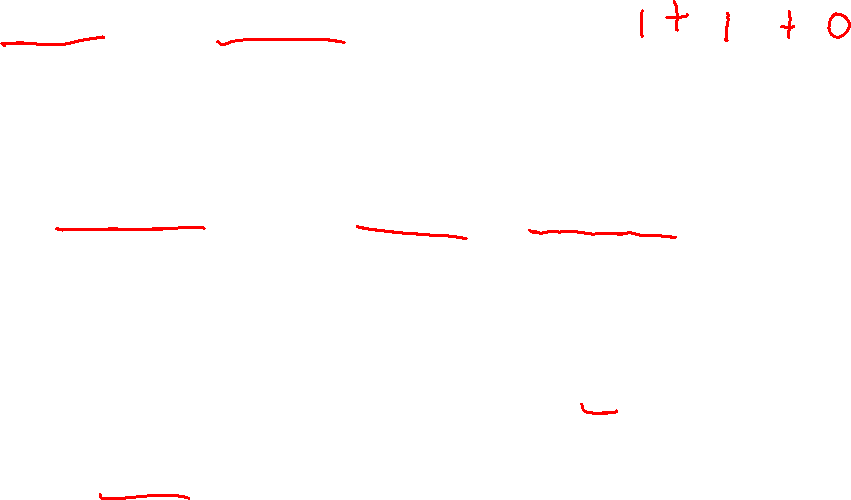 1 + 1 + 0